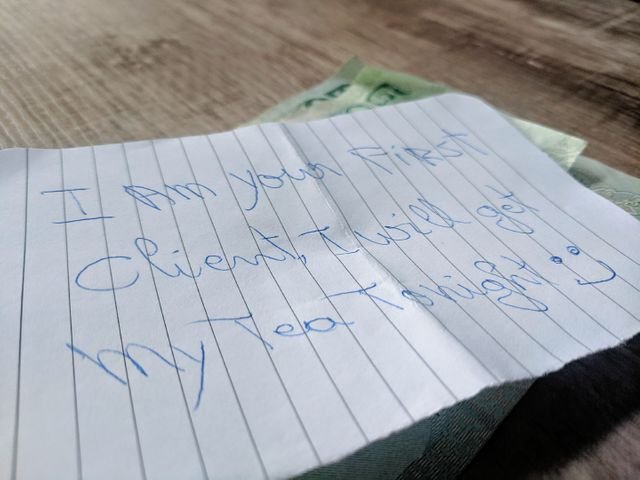 I Am your First
Client, I will get
My Tea Tonight :)